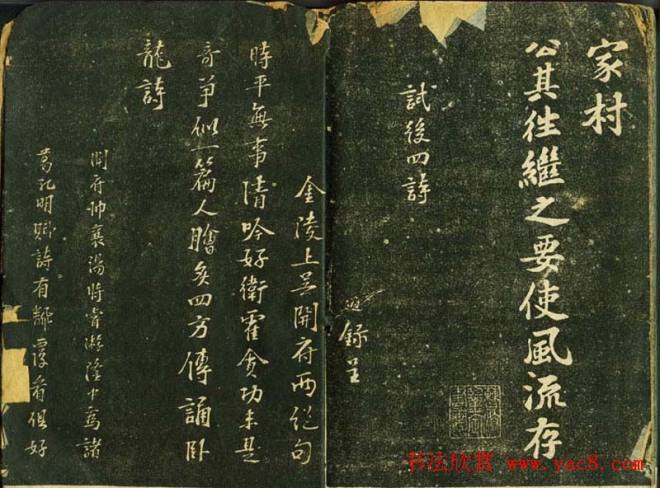 家村
公其往繼之要使風流存
試後四詩
錄呈
金陵上吳開府兩絕句
時平無事清吟好衛霍貪功未是
奇爭似一篇人膾炙四方傳誦卧
龍詩
開府帥襄陽時嘗游隆中爲諸
葛孔明賦詩有看但好
书法欣赏 www.yac8.com